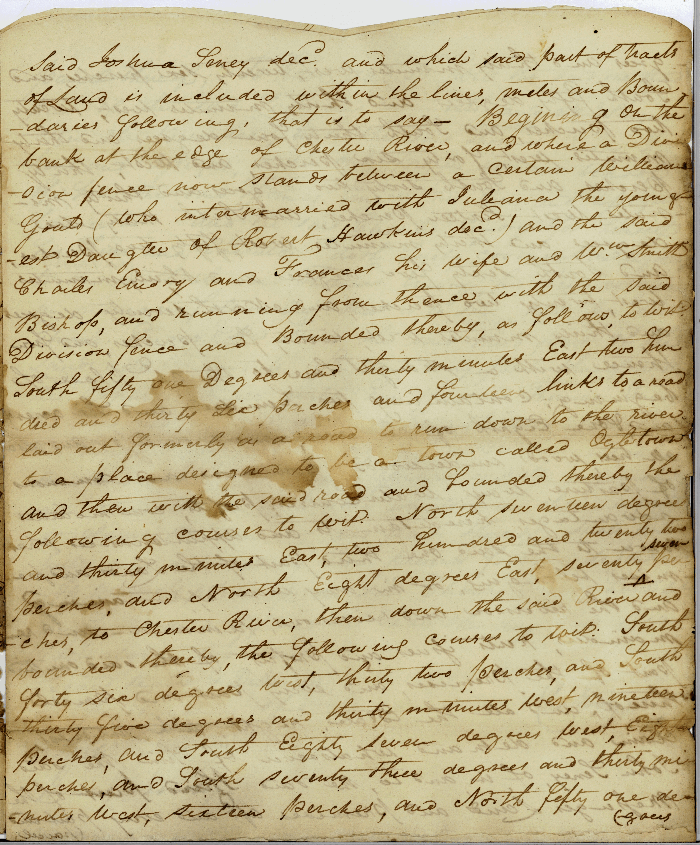 Said Joshua Seney decd. and which said part of Tracts
of Land is included within the lines, metes and Boun
-daries following, that is to say - Begining on the
bank at the edge of Chester River, and where a Divi
-sion fence now stands between a certain William
Gould (who intermarried with Juleana the young-
-est Daugter of Robert Hawkins decd.) and the said
Charles Emory and Frances his wife and Wm. Smith
Bishop, and running from thence with the said
Division fence and Bounded thereby, as follow, to wit.
South fifty one Degrees and thirty minutes East two hun
dred and thirty six perches and fourteen links to a road
laid out formerly as a road to run down to the river
to a place designed to be a town called Ogletown
and then with the said road and bounded thereby the
following courses to wit. North seventeen degrees
and thirty minutes East, two hundred and twenty two
perches, and North Eight degrees East, seventy seven per
ches, to Chester River, then down the said River and
bounded thereby, the following courses to wit. South
forty six degrees West, thirty two perches, and South
thirty five degrees and thirty minutes West, nineteen
perches, and South Eighty seven degrees West, Eight
perches, and South seventy three degrees and thirty mi
-nutes West, sixteen perches, and North fifty one de-
(grees